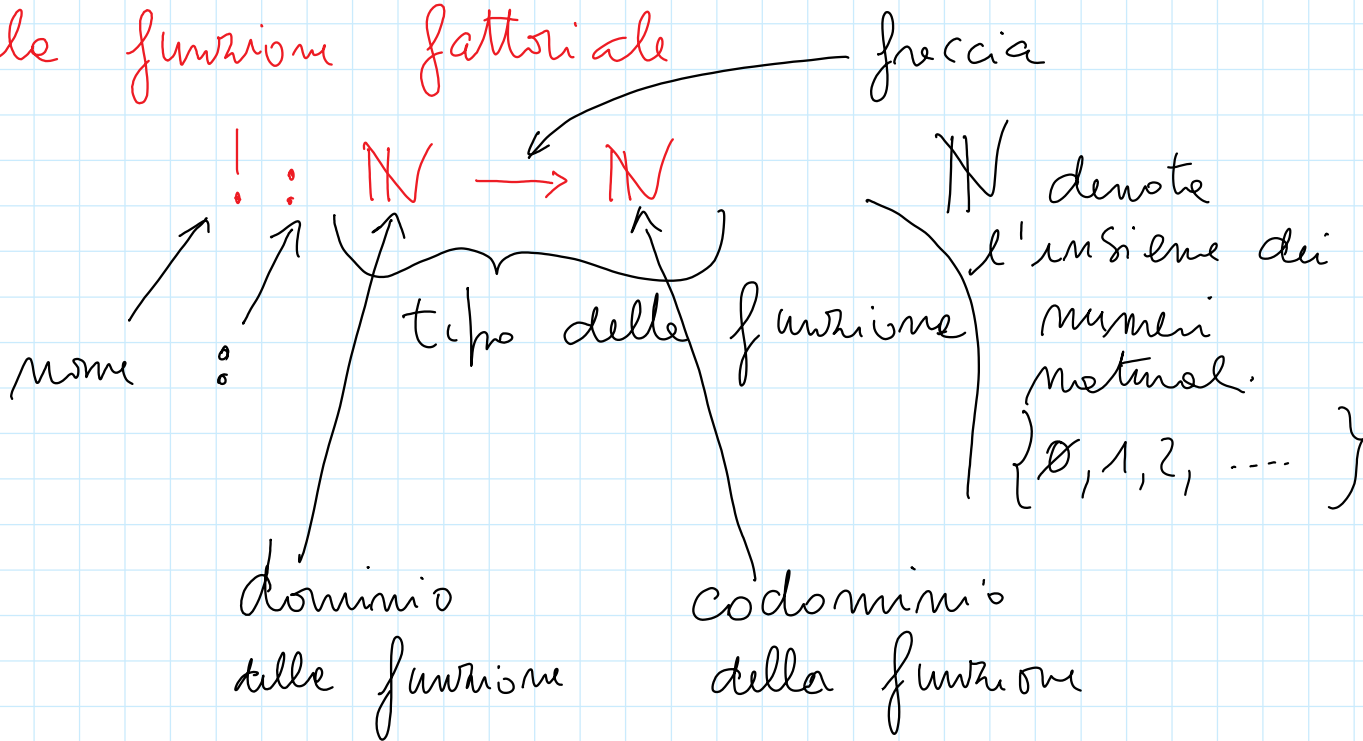 la funzione fattoriale
freccia
! : ℕ → ℕ
ℕ denota
l'insieme dei
numeri
naturali.
{0, 1, 2, ....}
tipo della funzione
nome :
dominio
della funzione
codominio
della funzione